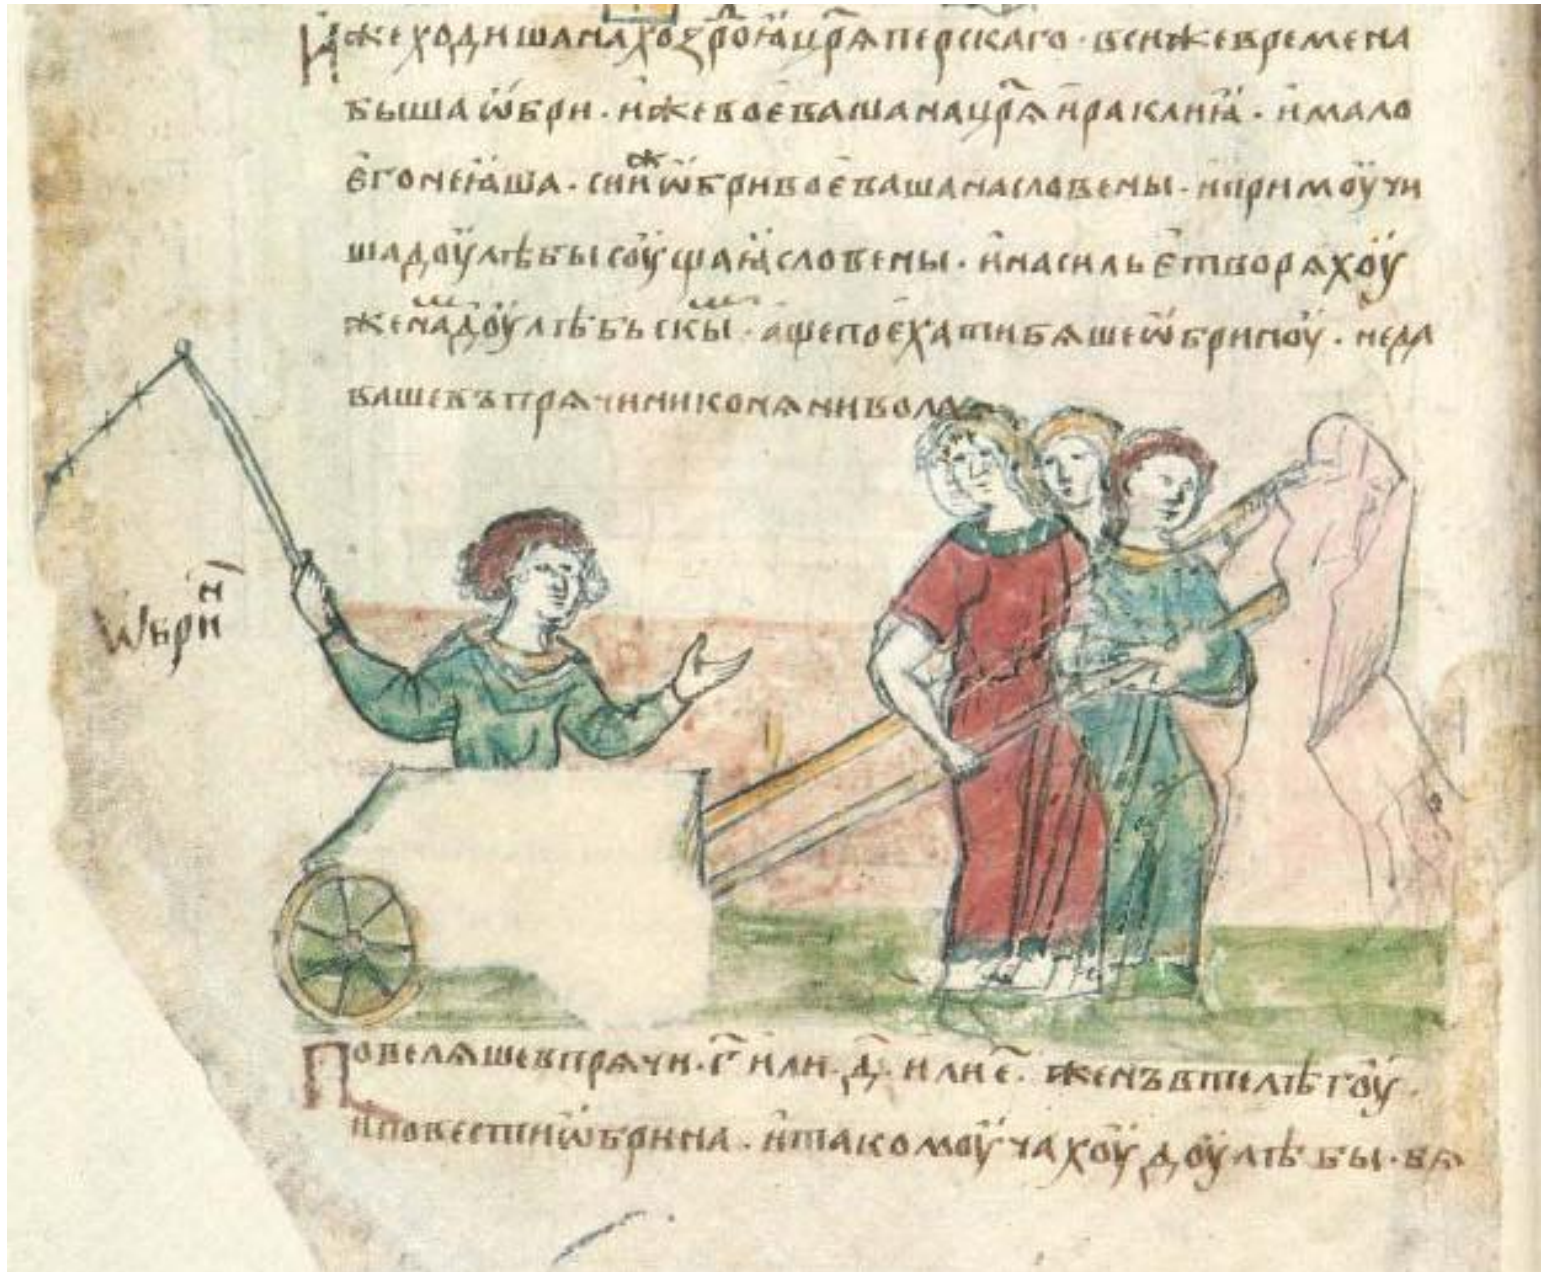 И҆же ходиша на хоздрою҆ цр҃ѧ перскаго · в си же времена
быша ѡ҆бри · и҆же воеваша на цр҃ѧ и҆раклиꙗ · и҆ мало
е҆го не ꙗ҆ша · сии ж ѡ҆бри воеваша на словены · и҆ примоучи
ша доулѣбы соущаꙗ словены · и҆ насилье твор ѧхоу
женам доулѣбьскым · аще поехати бѧше ѡ҆бриноу · не да
ваше въпрѧчи ни конѧ ни вола
ѡ҆брин
Повелѧше впрѧчи · г҃ · или · д҃ · или е҃ · женъ в телѣгоу ·
и҆ повести ѡ҆брина · и҆ тако моучахоу доулѣбы · вѧ